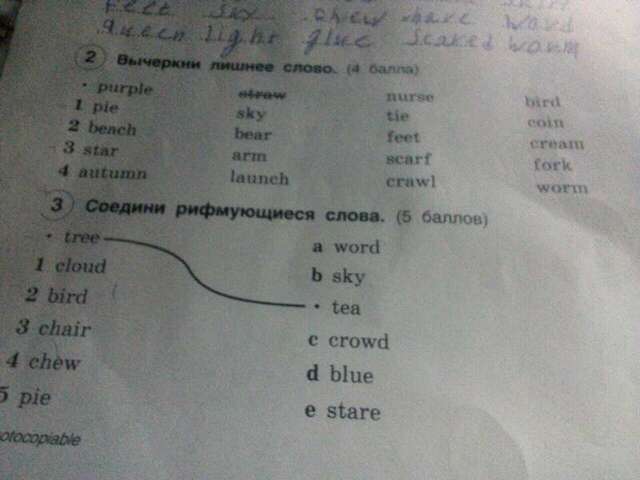 feet sky chew share word
queen light glue scared warm
2 Вычеркни лишнее слово. (4 балла)
• purple straw nurse bird
1 pie sky tie coin
2 beach bear feet cream
3 star arm scarf fork
4 autumn launch crawl worm
3 Соедини рифмующиеся слова. (5 баллов)
• tree a word
1 cloud b sky
2 bird • tea
3 chair c crowd
4 chew d blue
5 pie e stare
otocopiable